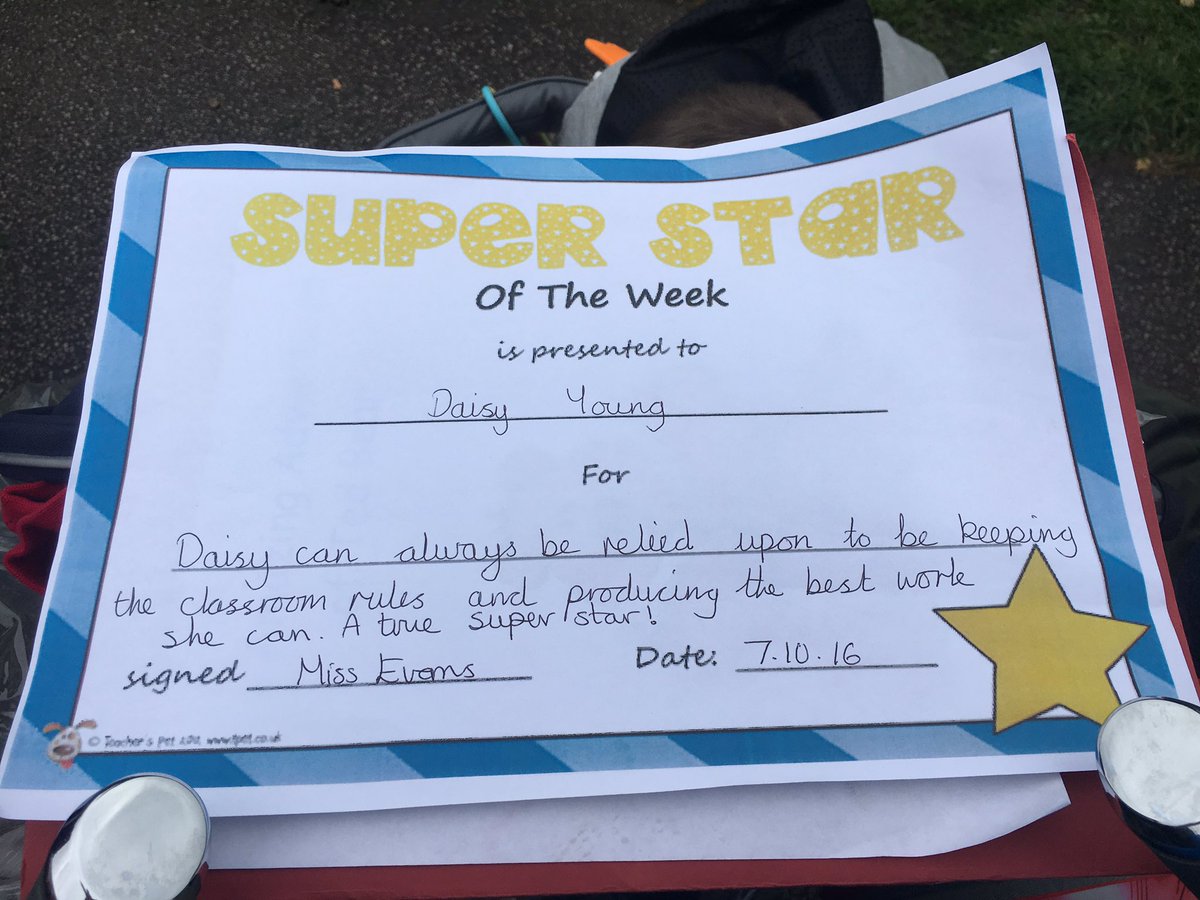 SUPER STAR
Of The Week
is presented to
Daisy Young
For
Daisy can always be relied upon to be keeping
the classroom rules and producing the best work
she can. A true super star!
signed Miss Evans Date: 7.10.16
© Teacher's Pet Ltd, www.tpet.co.uk